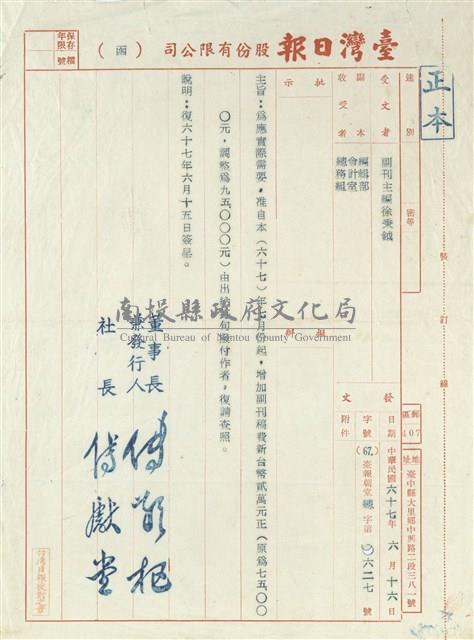 臺灣日報股份有限公司（函）
保存年限
檔號
正本
速別
密等
裝訂線
受文者
副刊主編徐秉鉞
副本收受者
編輯部
會計室
總務組
批示
擬辦
發文
日期
中華民國六十七年六月十六日
字號
(67)臺報朝堂總字第〇六二七號
附件
郵區
407
地址
臺中縣大里鄉中興路二段三八一號
主旨：為應實際需要，准自本（六十七）年七月份起，增加副刊稿費新台幣貳萬元正（原為七五〇〇
〇元，調整為九五、〇〇〇元）由出納按旬發付作者，復請查照。
說明：復六十七年六月十五日簽呈。
董事長
兼發行人
社長
南投縣政府文化局
Cultural Bureau of Nantou County Government